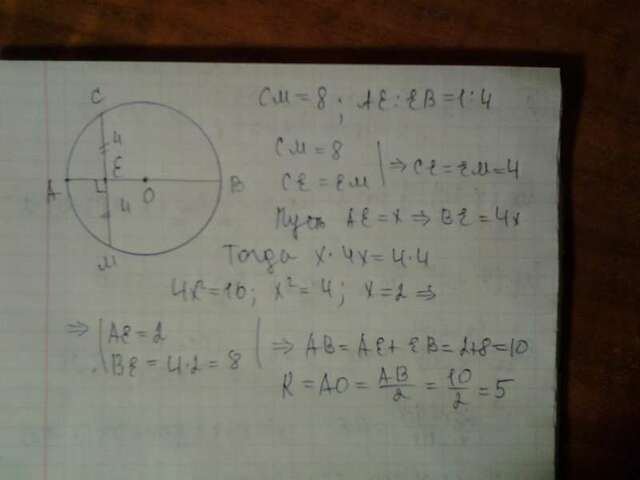 CM = 8 ; AE : EB = 1 : 4
C
4
E
A
4
O
B
M
CM = 8
CE = EM
⇒ CE = EM = 4
Пусть AE = x ⇒ BE = 4x
Тогда x · 4x = 4 · 4
4x² = 16 ; x² = 4 ; x = 2 ⇒
⇒ AE = 2
BE = 4 · 2 = 8
⇒ AB = AE + EB = 2+8 = 10
R = AO = AB/2 = 10/2 = 5